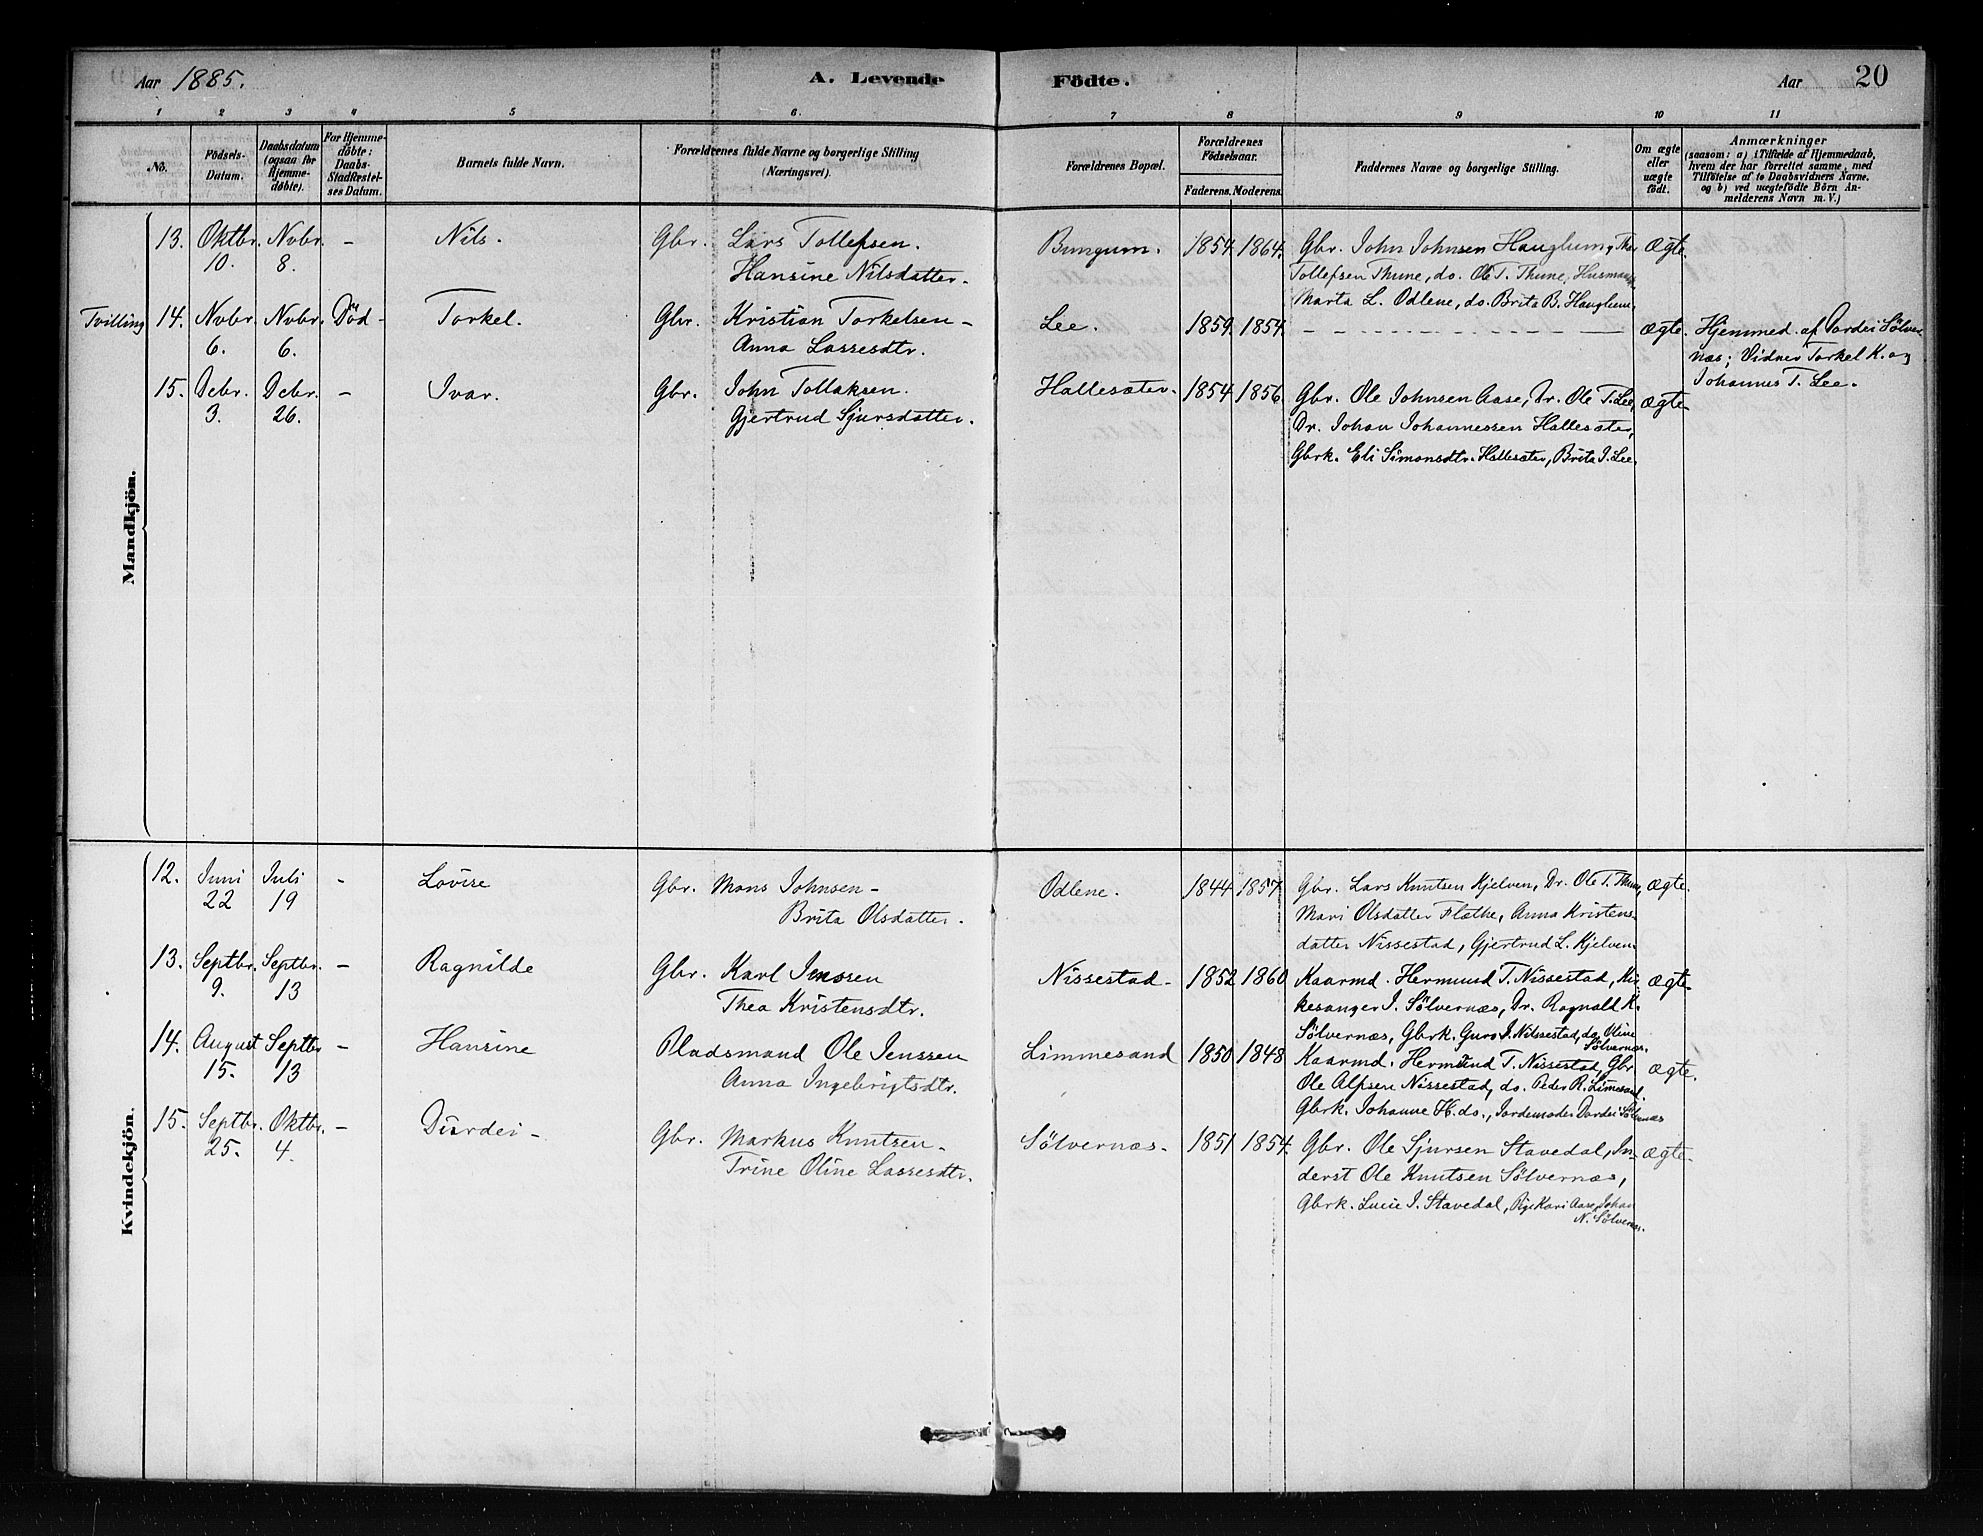 Aar 1885. A. Levende Födte. Aar 20
1 2 3 4 5 6. 7 8 9 10 11
No. Födsels-Datum. Daabsdatum (ogsaa for Hjemmedöbte). For Hjemmedöbte: Daabs-Stadfæstelses Datum. Barnets fulde Navn. Forældrenes fulde Navne og borgerlige Stilling (Næringsvei). Forældrenes Bopæl. Forældrenes Födselsaar. Faderens. Moderens. Faddernes Navne og borgerlige Stilling. Om ægte eller uægte födt. Anmærkninger (saasom: a) i Tilfælde af Hjemmedaab, hvem der har forrettet samme, med Tilföielse af to Daabsvidners Navne, og b) ved uægtefödte Börn Anmelderens Navn m. V.)
Mandkjön.
13. Oktbr. Nvbr. - Nils. Gbr. Lars Tollefsen. Bungum. 1854. 1864. Gbr. John Johnsen Hauglum, Tho Ægte.
10. 8. Hansine Nilsdatter. Tollefsen Thune, do. Ole T. Thune, Husmand
Marta L. Odlene, do. Brita B. Hauglum.
Tvilling 14. Nvbr. Nvbr. Död - Torkel. Gbr. Kristian Torkelsen - Lee. 1859. 1854. Ægte. Hjemmed. af Dordei Sölver
6. 6. Anna Lassesdtr. næs; Vidner Torkel K. og
Johannes T. Lee.
15. Debr. Debr. - Ivar. Gbr. John Tollaksen. Hallesæter. 1854. 1856. Gbr. Ole Johnsen Aase, Dr. Ole T. Lee, Ægte.
3. 26. Gjertrud Sjursdatter. Dr. Johan Johannessen Hallesæter,
Gbrk. Eli Simonsdtr. Hallesæter, Brita J. Lee.
Kvindekjön.
12. Juni Juli - Lovise Gbr. Mons Johnsen - Odlene. 1844. 1857. Gbr. Lars Knutsen Kjelven, Dr. Ole T. Thune, Ægte.
22 19 Brita Olsdatter. Mari Olsdatter Flathe, Anna Kristens-
datter Nissestad, Gjertrud L. Kjelven.
13. Septbr. Septbr. - Ragnilde Gbr. Karl Jenssen Nissestad - 1852 1860 Kaarmd. Hermund T. Nissestad, Kir- Ægte.
9. 13 Thea Kristensdtr. kesanger J. Sölvernæs, Dr. Ragnald K.
Sölvernæs, Gbrk. Guro J. Nilssestad, do. Oline
Sölvernæs.
14. August Septbr - Hansine Pladsmand Ole Jenssen Limmesand 1850. 1848 Kaarmd. Hermund T. Nissestad, Gbr. Ægte.
15. 13 Anna Ingebrigtsdtr. Ole Alfsen Nissestad, do. Peder R. Limesand.
Gbrk. Johanne H. do., Jordemoder Dordei Sölvernæs
15. Septbr. Oktbr. - Durdei - Gbr. Markus Knutsen - Sölvernæs. 1851. 1854. Gbr. Ole Sjursen Stavedal, In- Ægte.
25. 4. Trine Oline Lassesdtr. derst Ole Knutsen Sölvernæs,
Gbrk. Lucie J. Stavedal, Pige Kari Aase, Johan
N. Sölvernæs.